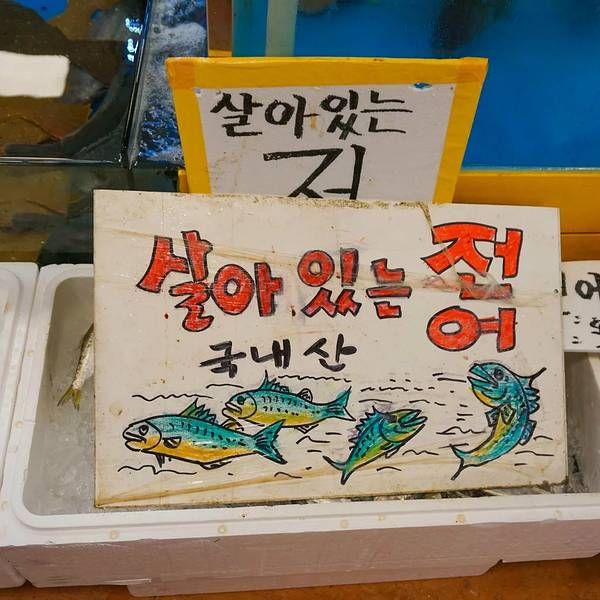 살아있는
저
살아 있는 전어
국내산
어